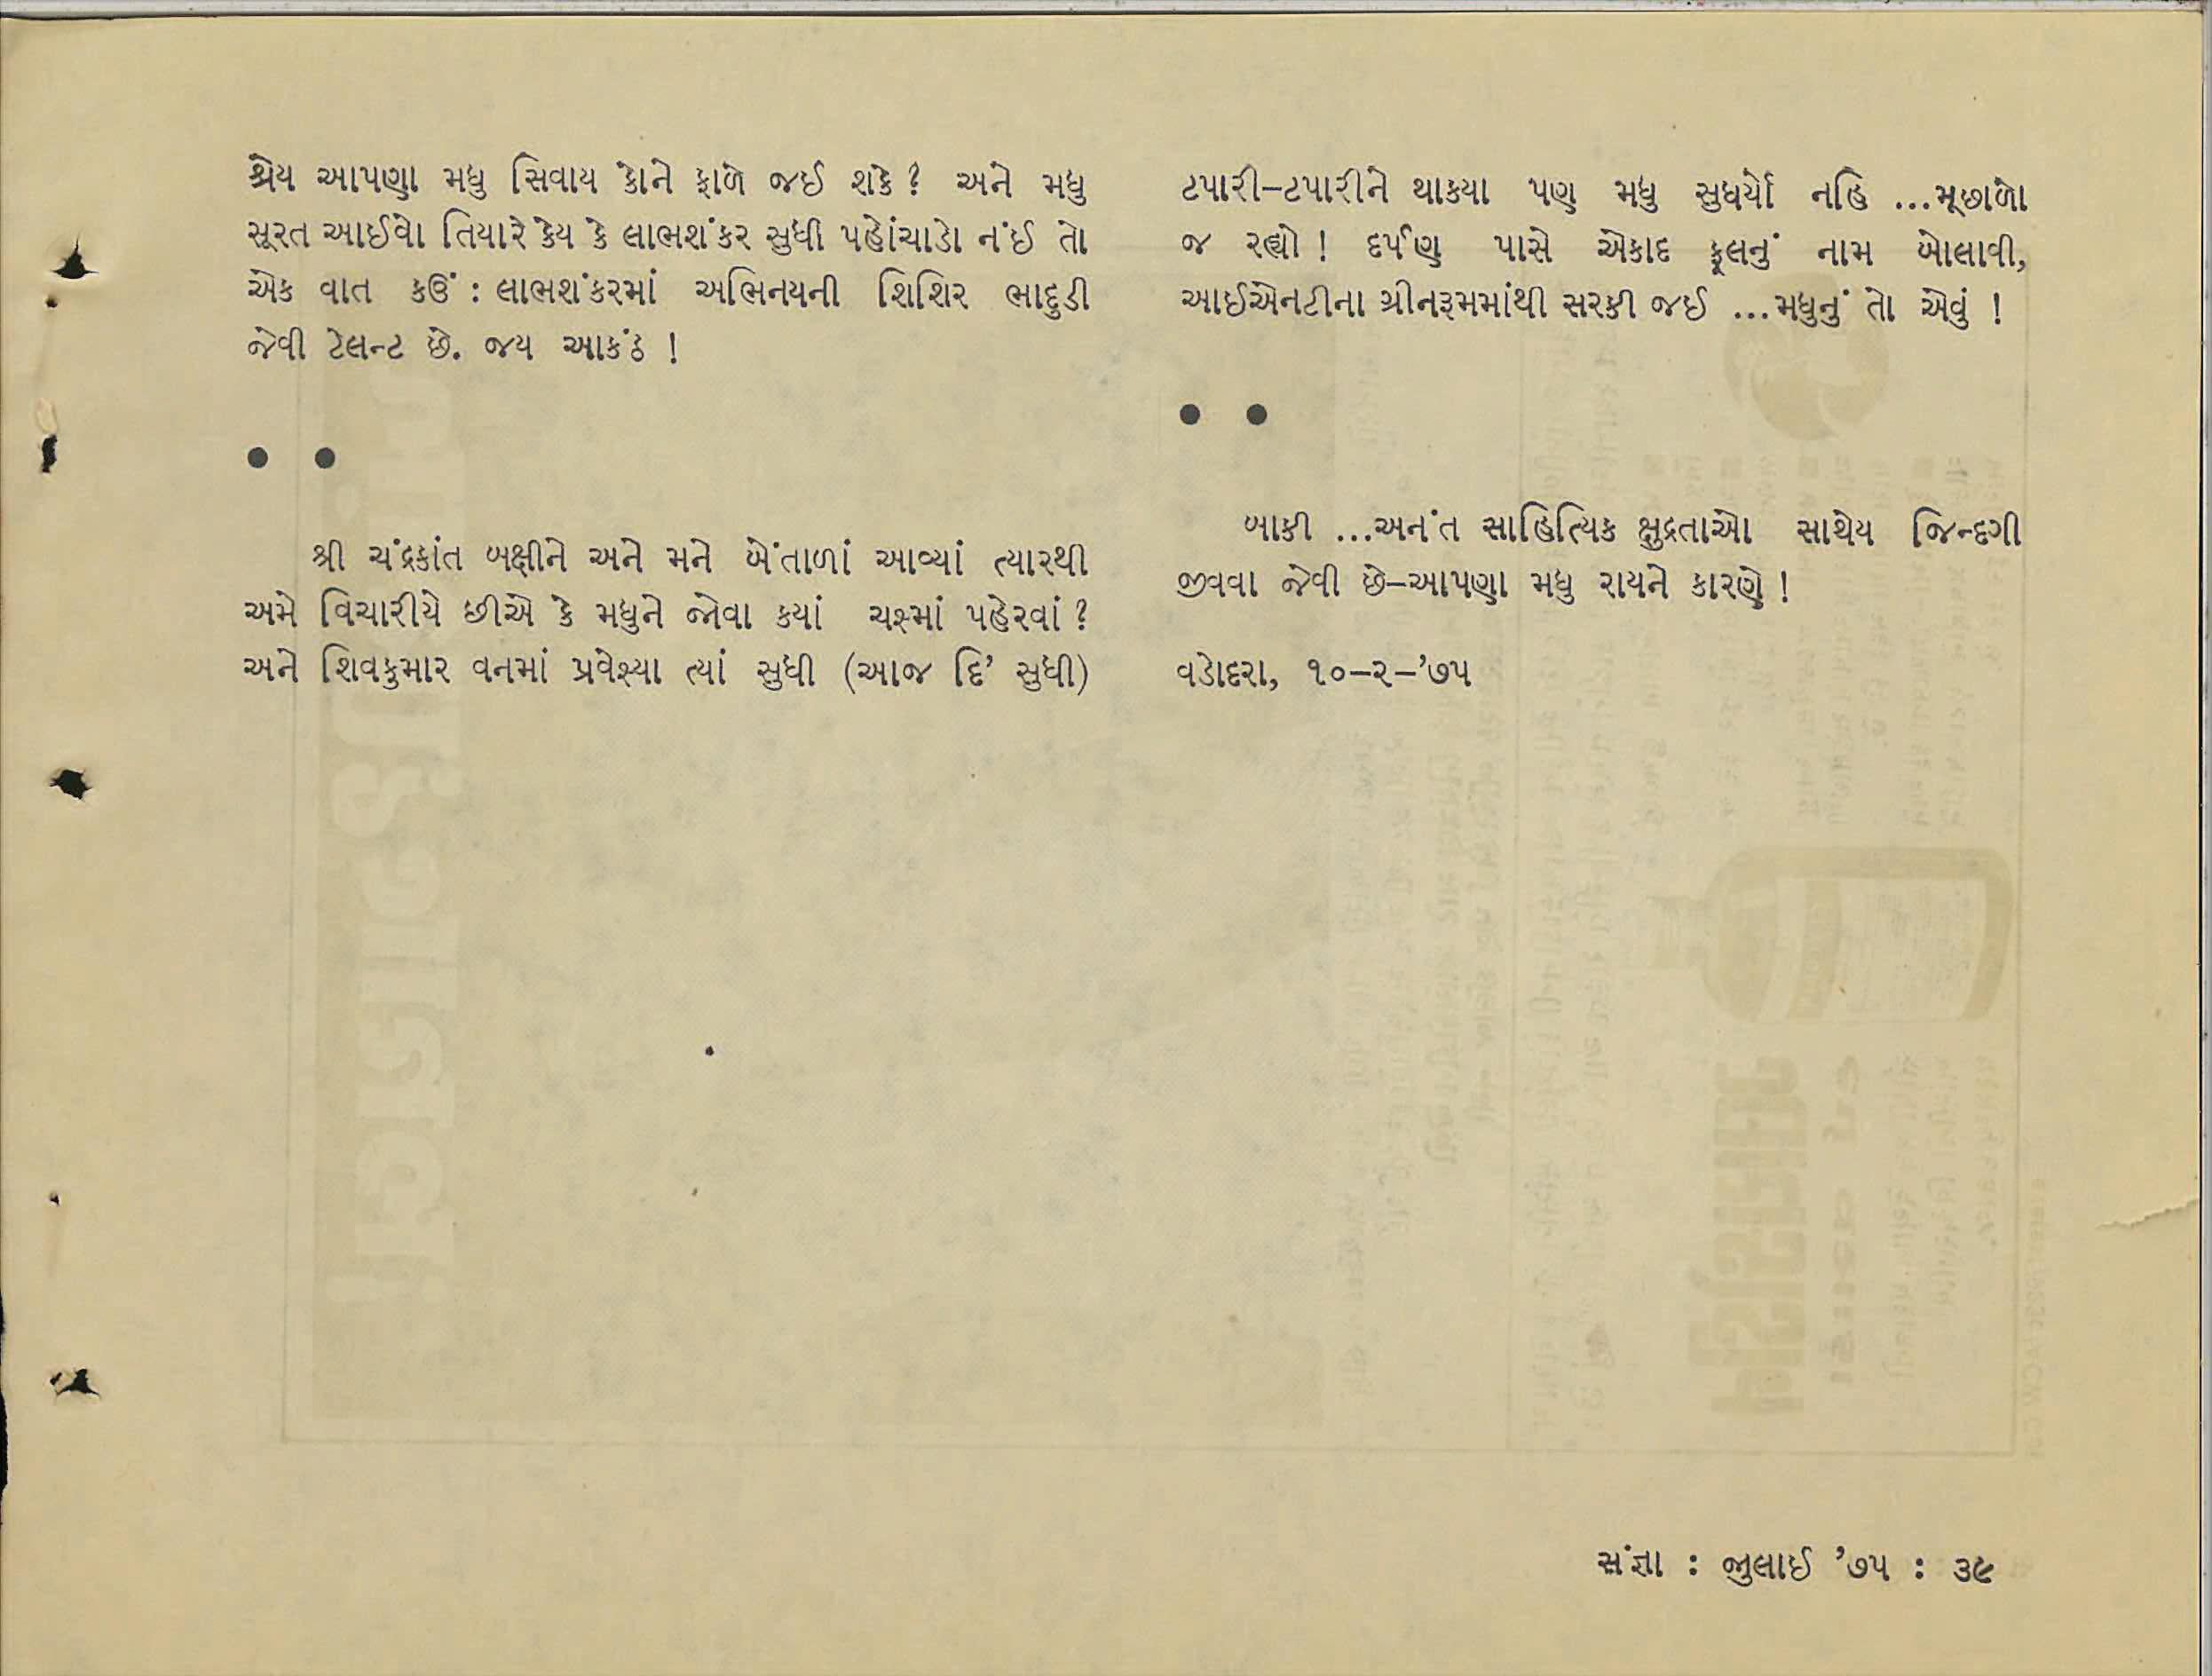 શ્રેય આપણા મધુ સિવાય કોને ફાળે જઈ શકે? અને મધુ
સૂરત આઈવો તિયારે કેય કે લાભશંકર સુધી પહોંચાડો નંઈ તો
એક વાત કઉં : લાભશંકરમાં અભિનયની શિશિર ભાદુડી
જેવી ટેલન્ટ છે. જય આકંઠ !
● ●
શ્રી ચંદ્રકાંત બક્ષીને અને મને બેંતાળાં આવ્યાં ત્યારથી
અમે વિચારીયે છીએ કે મધુને જોવા કયાં ચશ્માં પહેરવાં?
અને શિવકુમાર વનમાં પ્રવેશ્યા ત્યાં સુધી (આજ દિ' સુધી)
ટપારી–ટપારીને થાકયા પણ મધુ સુધર્યો નહિ ...મૂછાળો
જ રહ્યો ! દર્પણ પાસે એકાદ ફૂલનું નામ બોલાવી,
આઈએનટીના ગ્રીનરૂમમાંથી સરકી જઈ ...મધુનું તો એવું !
● ●
બાકી ...અનંત સાહિત્યિક ક્ષુદ્રતાઓ સાથેય જિન્દગી
જીવવા જેવી છે–આપણા મધુ રાયને કારણે !
વડોદરા, ૧૦–૨–'૭૫
સંજ્ઞા : જુલાઈ '૭૫ : ૩૯